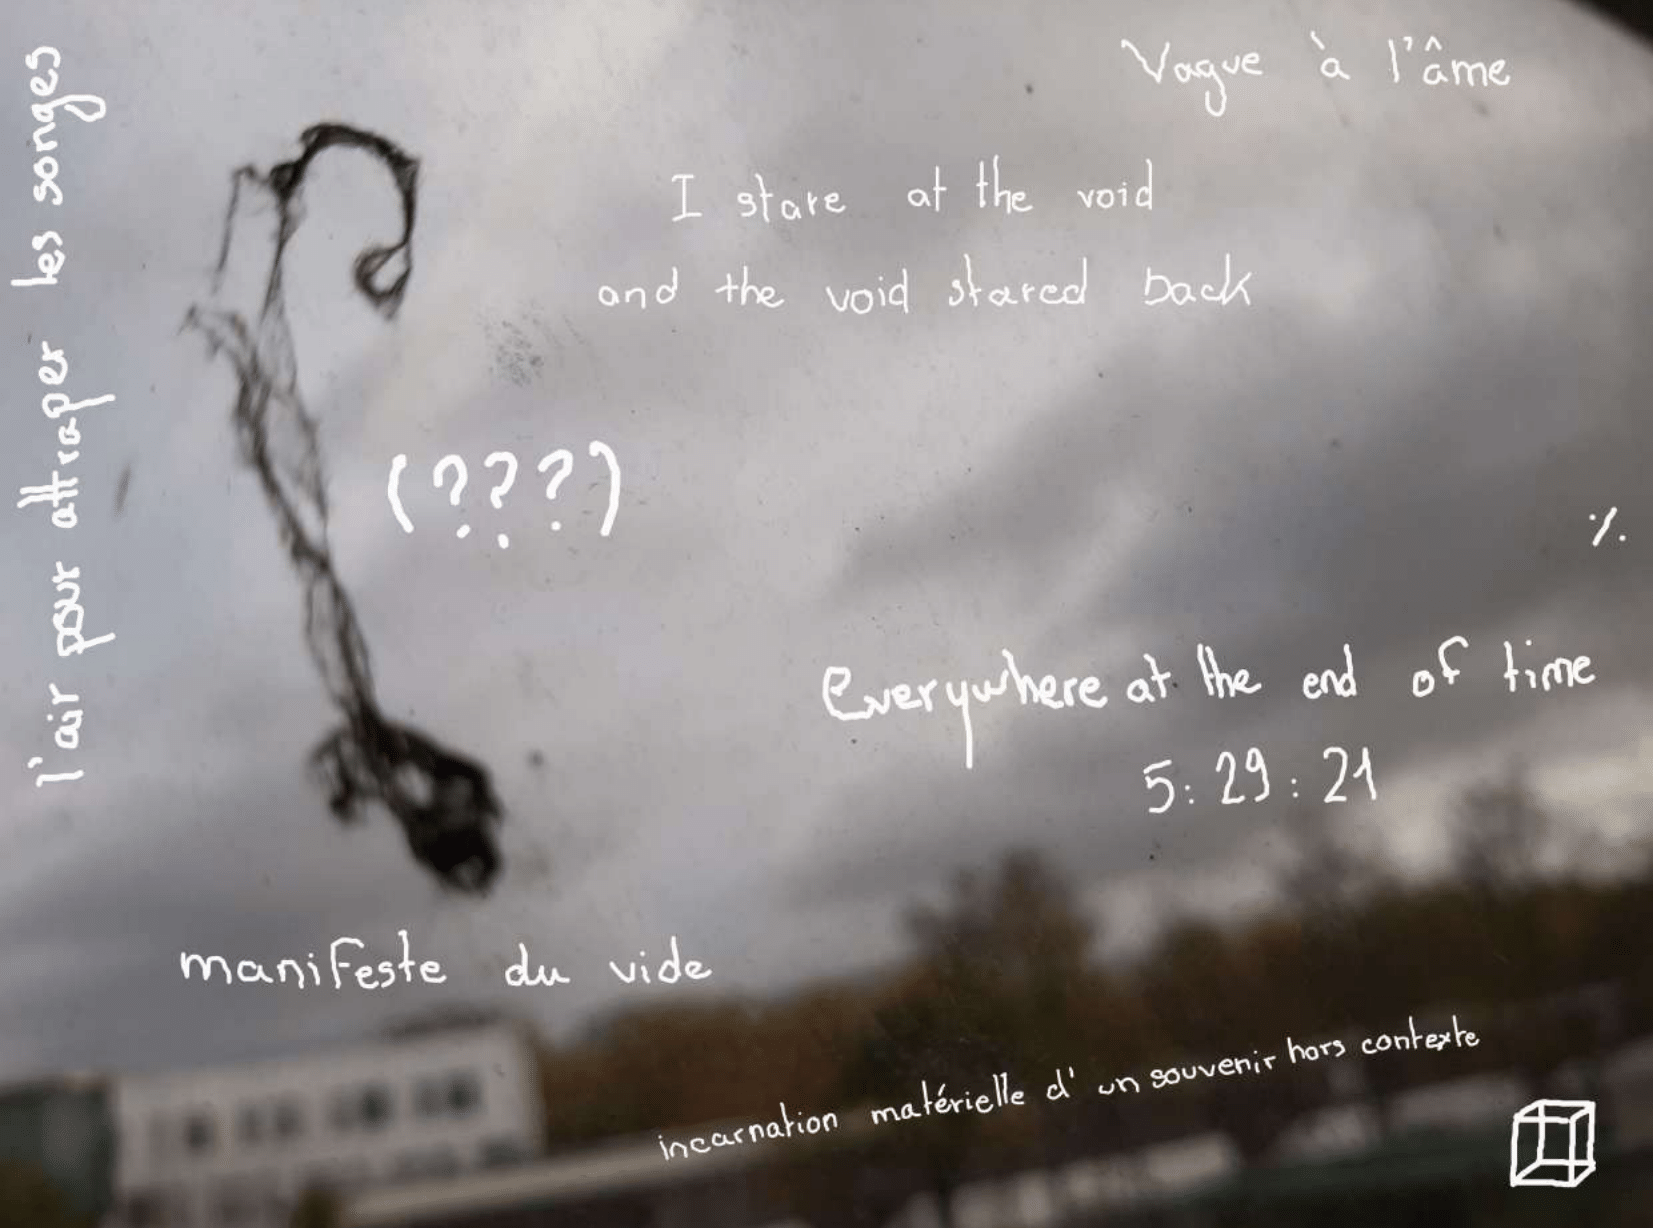 l'air pour attraper les songes
Vague à l'âme
I stare at the void
and the void stared back
(???)
%
Everywhere at the end of time
5:29:21
manifeste du vide
incarnation matérielle d'un souvenir hors contexte